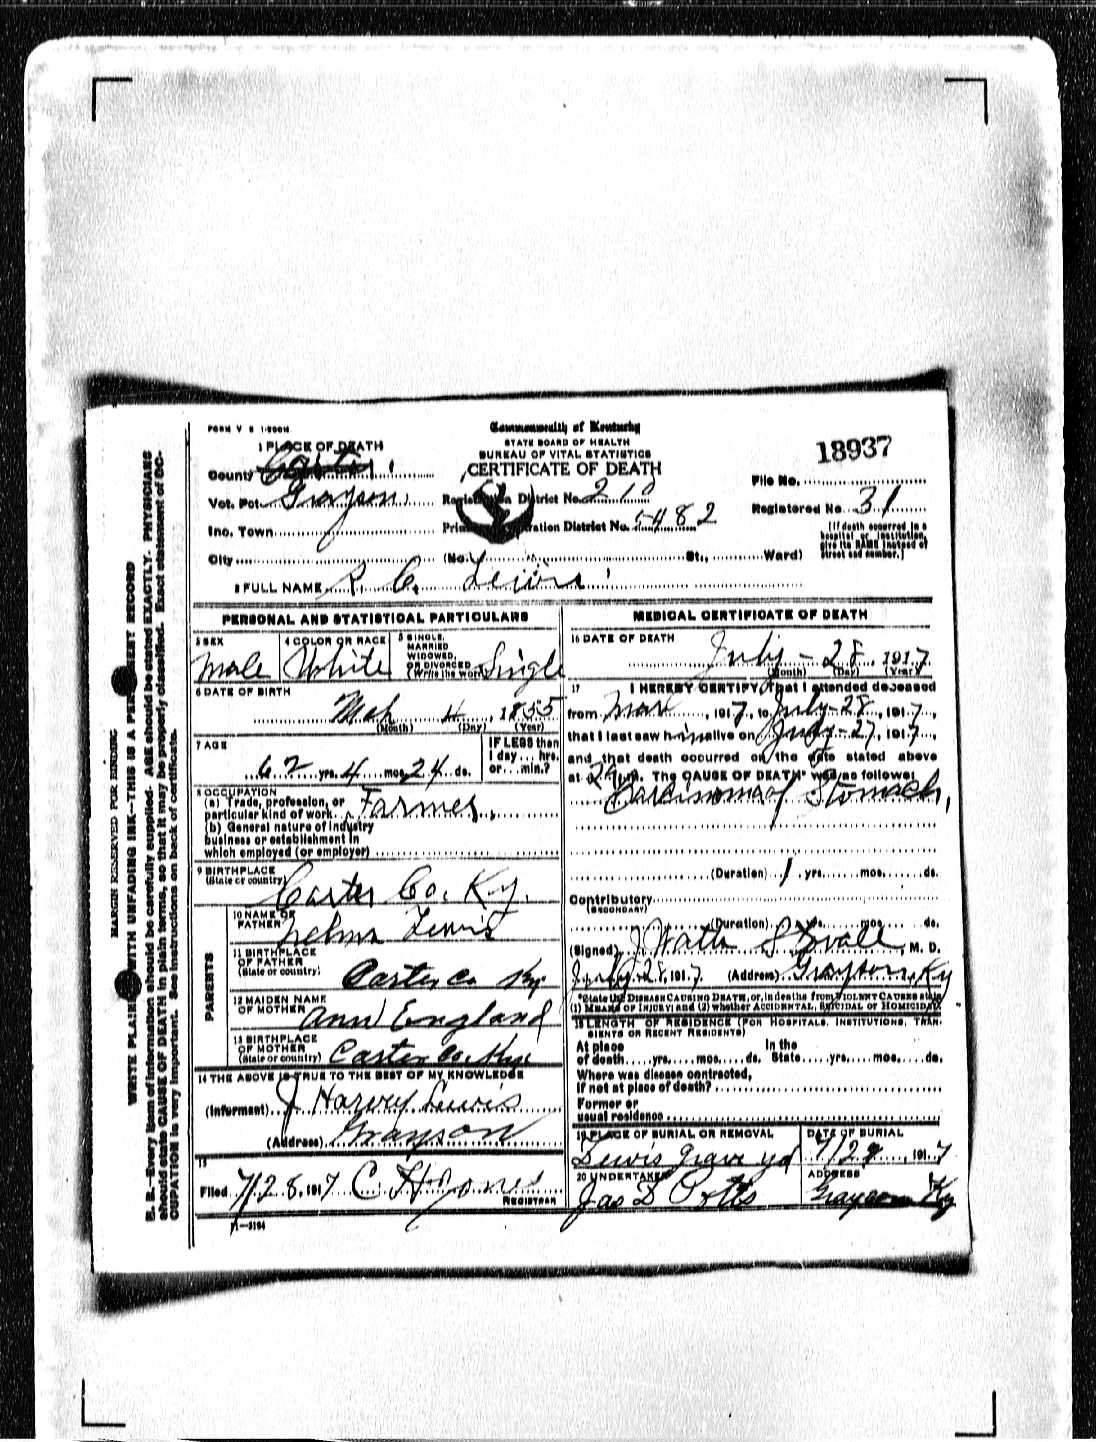 FORM V S 1-200M
Commonwealth of Kentucky
STATE BOARD OF HEALTH
BUREAU OF VITAL STATISTICS
CERTIFICATE OF DEATH
18937
1 PLACE OF DEATH
County Carter
Vot. Pct. Grayson
Inc. Town
City
Registration District No. 210
Primary Registration District No. 5482
File No.
Registered No. 31
(No. St., Ward)
[If death occurred in a hospital or institution, give its NAME instead of street and number.]
2 FULL NAME R. C. Lewis
PERSONAL AND STATISTICAL PARTICULARS
3 SEX Male
4 COLOR OR RACE White
5 SINGLE, MARRIED WIDOWED, OR DIVORCED (Write the word) Single
6 DATE OF BIRTH
Mch 4, 1855
(Month) (Day) (Year)
7 AGE
62 yrs. 4 mos. 24 ds.
IF LESS than 1 day... hrs. or... min.?
8 OCCUPATION
(a) Trade, profession, or particular kind of work Farmer
(b) General nature of industry business or establishment in which employed (or employer)
9 BIRTHPLACE
(State or country) Carter Co. Ky.
PARENTS
10 NAME OF FATHER Lewis
11 BIRTHPLACE OF FATHER (State or country) Carter Co Ky
12 MAIDEN NAME OF MOTHER Ann England
13 BIRTHPLACE OF MOTHER (State or country) Carter Co. Ky.
14 THE ABOVE IS TRUE TO THE BEST OF MY KNOWLEDGE
(Informant) J Harvey Lewis
(Address) Grayson
15
Filed 7/28, 1917 C H Jones
REGISTRAR
11-3194
MEDICAL CERTIFICATE OF DEATH
16 DATE OF DEATH
July - 28, 1917
(Month) (Day) (Year)
17 I HEREBY CERTIFY, That I attended deceased
from Mar, 1917, to July-28, 1917,
that I last saw him alive on July-27, 1917,
and that death occurred on the date stated above
at 2 m. The CAUSE OF DEATH* was as follows:
Carcinoma of Stomach,
(Duration) 1 yrs. mos. ds.
Contributory
(SECONDARY)
(Duration) yrs. mos. ds.
(Signed) J Watts Stovall, M. D.
July 28, 1917 (Address) Grayson Ky
*State the DISEASE CAUSING DEATH, or, in deaths from VIOLENT CAUSES state
(1) MEANS OF INJURY; and (2) whether ACCIDENTAL, SUICIDAL OR HOMICIDAL
18 LENGTH OF RESIDENCE (FOR HOSPITALS, INSTITUTIONS, TRANSIENTS OR RECENT RESIDENTS)
At place of death yrs. mos. ds. In the State yrs. mos. ds.
Where was disease contracted,
if not at place of death?
Former or
usual residence
19 PLACE OF BURIAL OR REMOVAL
Lewis Grave yd
DATE OF BURIAL
7/29, 1917
20 UNDERTAKER
Jas D Potts
ADDRESS
Grayson Ky
MARGIN RESERVED FOR BINDING
WRITE PLAINLY WITH UNFADING INK—THIS IS A PERMANENT RECORD
N. B.—Every item of information should be carefully supplied. AGE should be stated EXACTLY. PHYSICIANS
should state CAUSE OF DEATH in plain terms, so that it may be properly classified. Exact statement of OC-
CUPATION is very important. See instructions on back of certificate.